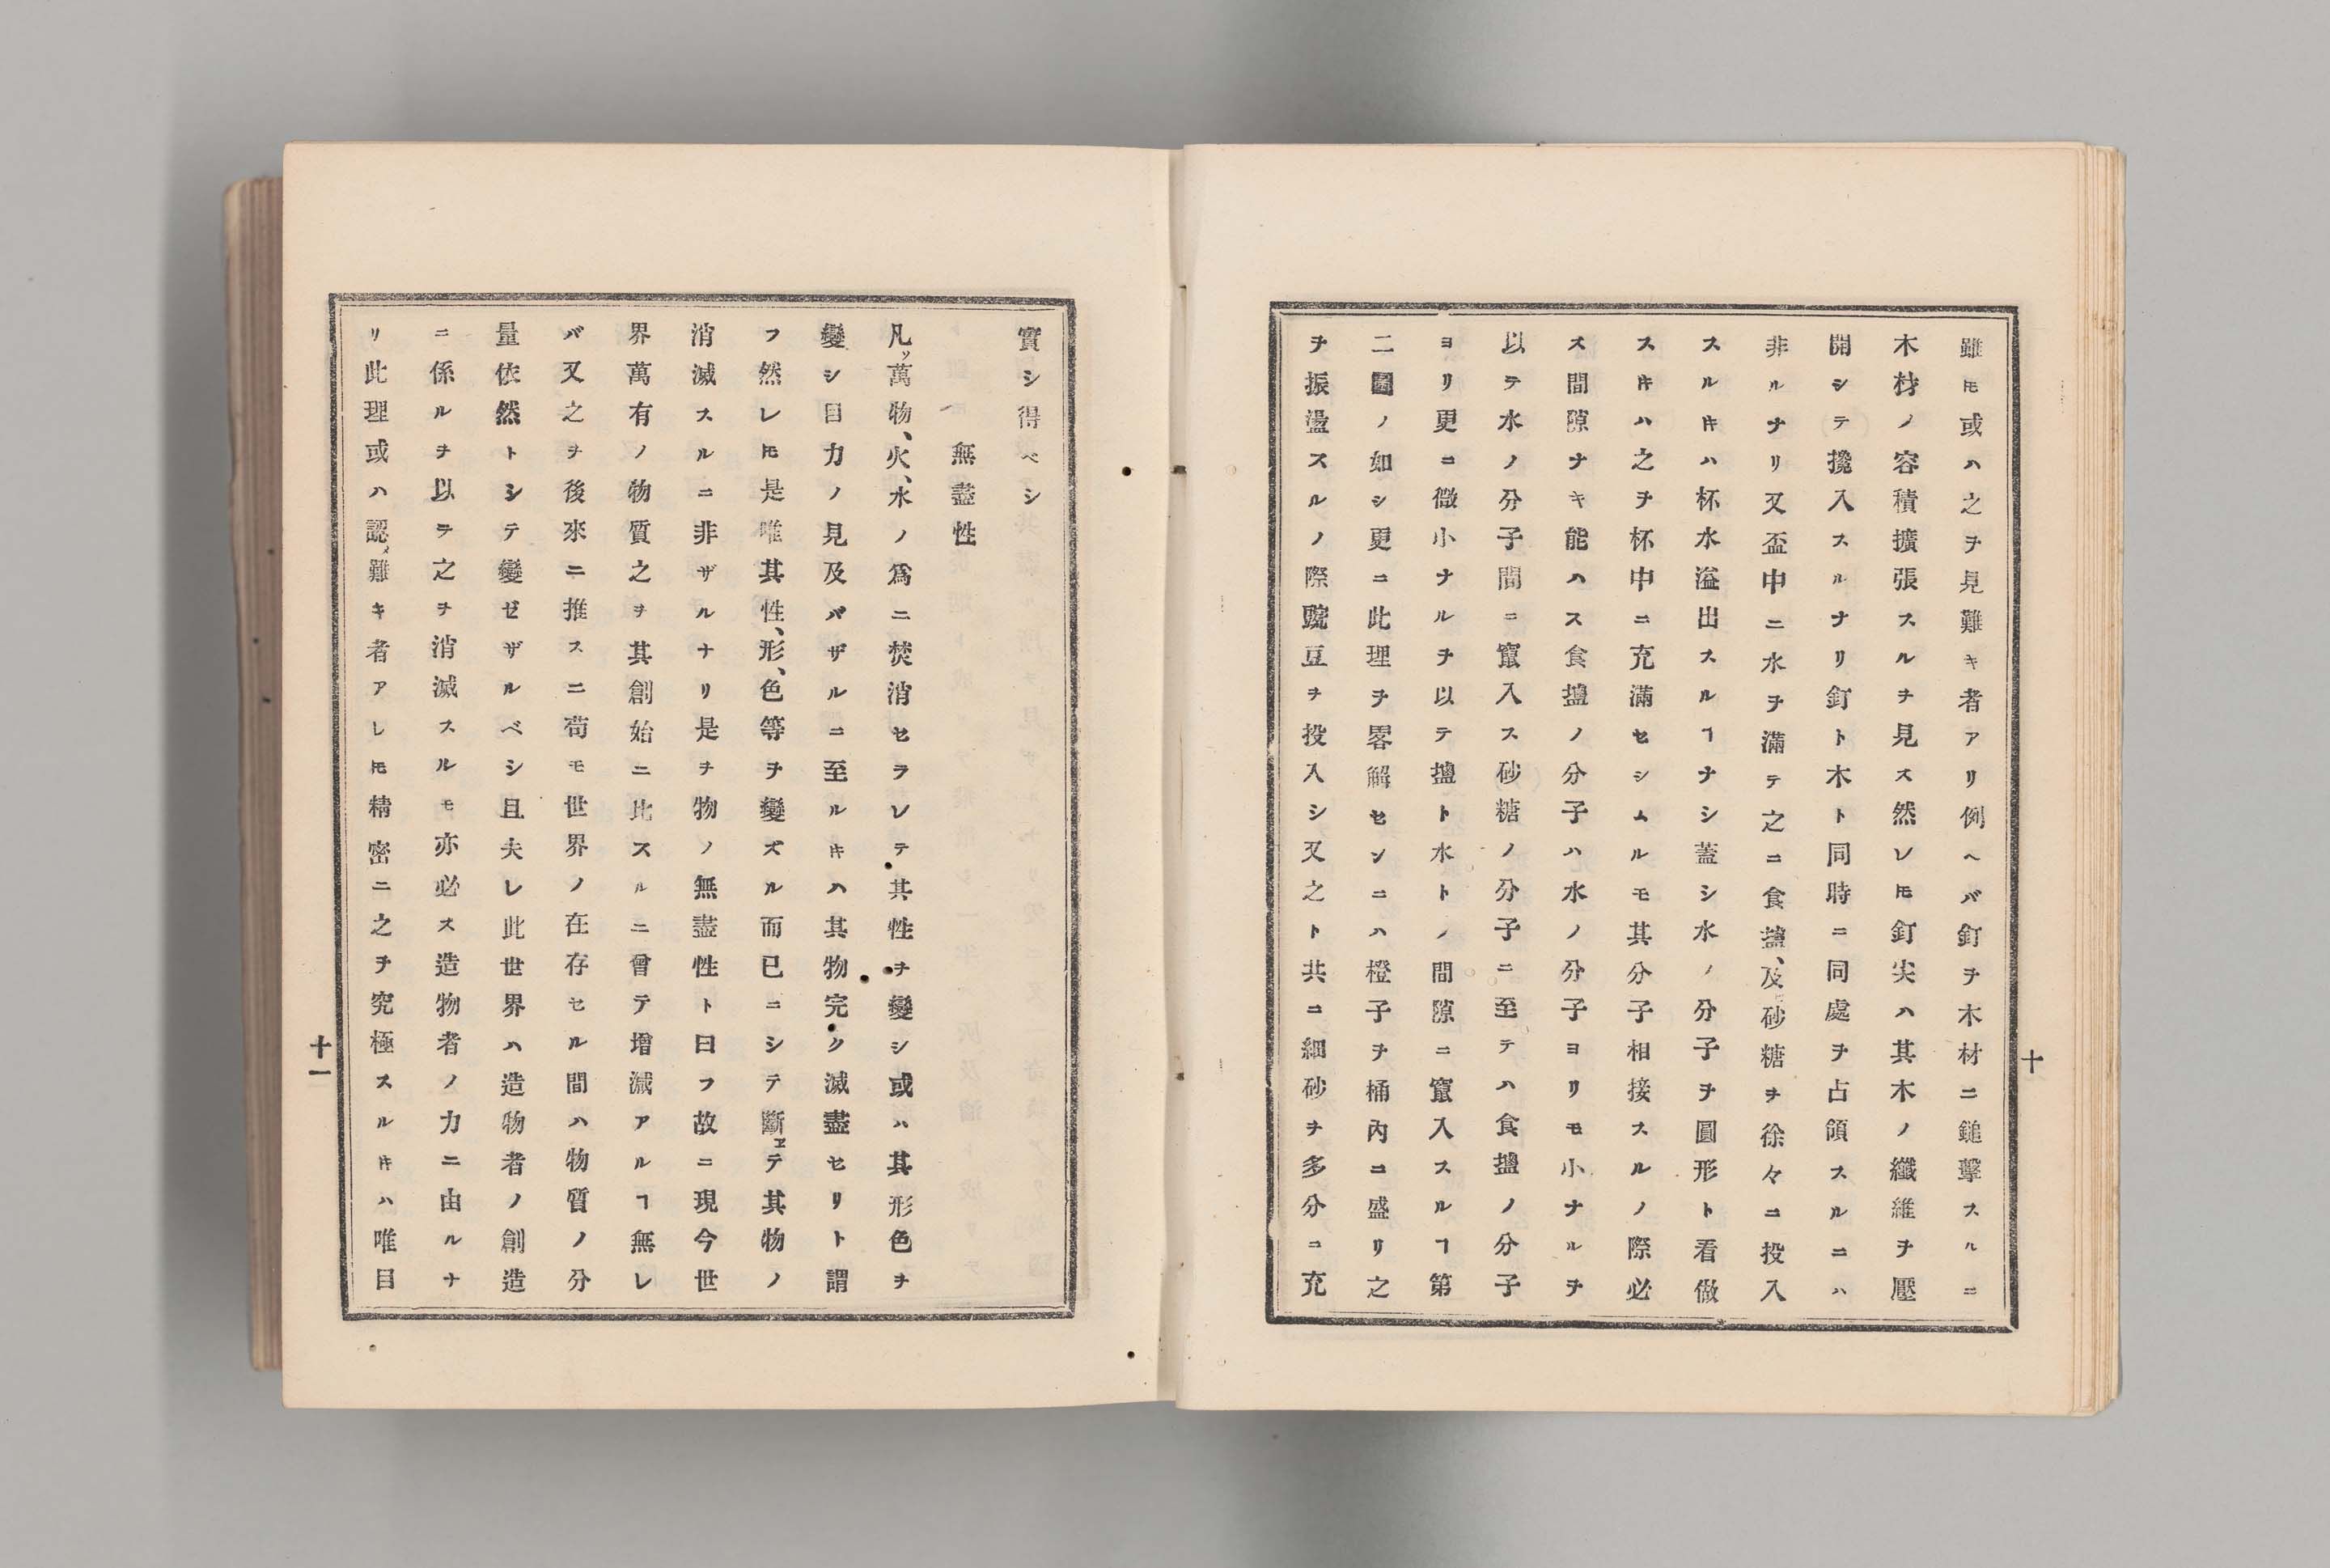 雖𪜈或ハ之ヲ見難キ者アリ例ヘバ釘ヲ木材ニ鎚擊スルニ
木材ノ容積擴張スルヲ見ス然レ𪜈釘尖ハ其木ノ纖維ヲ壓
開シテ攙入スルナリ釘ト木ト同時ニ同處ヲ占領スルニハ
非ルナリ又盃中ニ水ヲ滿テ之ニ食鹽、及砂糖ヲ徐々ニ投入
スルキハ杯水溢出スルヿナシ蓋シ水ノ分子ヲ圓形ト看做
スキハ之ヲ杯中ニ充滿セシムルモ其分子相接スルノ際必
ス間隙ナキ能ハス食鹽ノ分子ハ水ノ分子ヨリモ小ナルヲ
以テ水ノ分子間ニ竄入ス砂糖ノ分子ニ至テハ食鹽ノ分子
ヨリ更ニ微小ナルヲ以テ鹽ト水トノ間隙ニ竄入スルヿ第
二圖ノ如シ更ニ此理ヲ畧解センニハ橙子ヲ桶內ニ盛リ之
ヲ振盪スルノ際豌豆ヲ投入シ又之ト共ニ細砂ヲ多分ニ充
十
實シ得ベシ
無盡性
凡ソ萬物、火、水ノ爲ニ焚消セラレテ其性ヲ變シ或ハ其形色ヲ
變シ目力ノ見及バザルニ至ルキハ其物完ク滅盡セリト謂
フ然レ𪜈是唯其性、形、色等ヲ變ズル而已ニシテ斷ヱテ其物ノ
消滅スルニ非ザルナリ是ヲ物ノ無盡性ト曰フ故ニ現今世
界萬有ノ物質之ヲ其創始ニ比スルニ曾テ增減アルヿ無レ
バ又之ヲ後來ニ推スニ苟モ世界ノ在存セル間ハ物質ノ分
量依然トシテ變ゼザルベシ且夫レ此世界ハ造物者ノ創造
ニ係ルヲ以テ之ヲ消滅スルモ亦必ス造物者ノ力ニ由ルナ
リ此理或ハ認メ難キ者アレ𪜈精密ニ之ヲ究極スルキハ唯目
十一